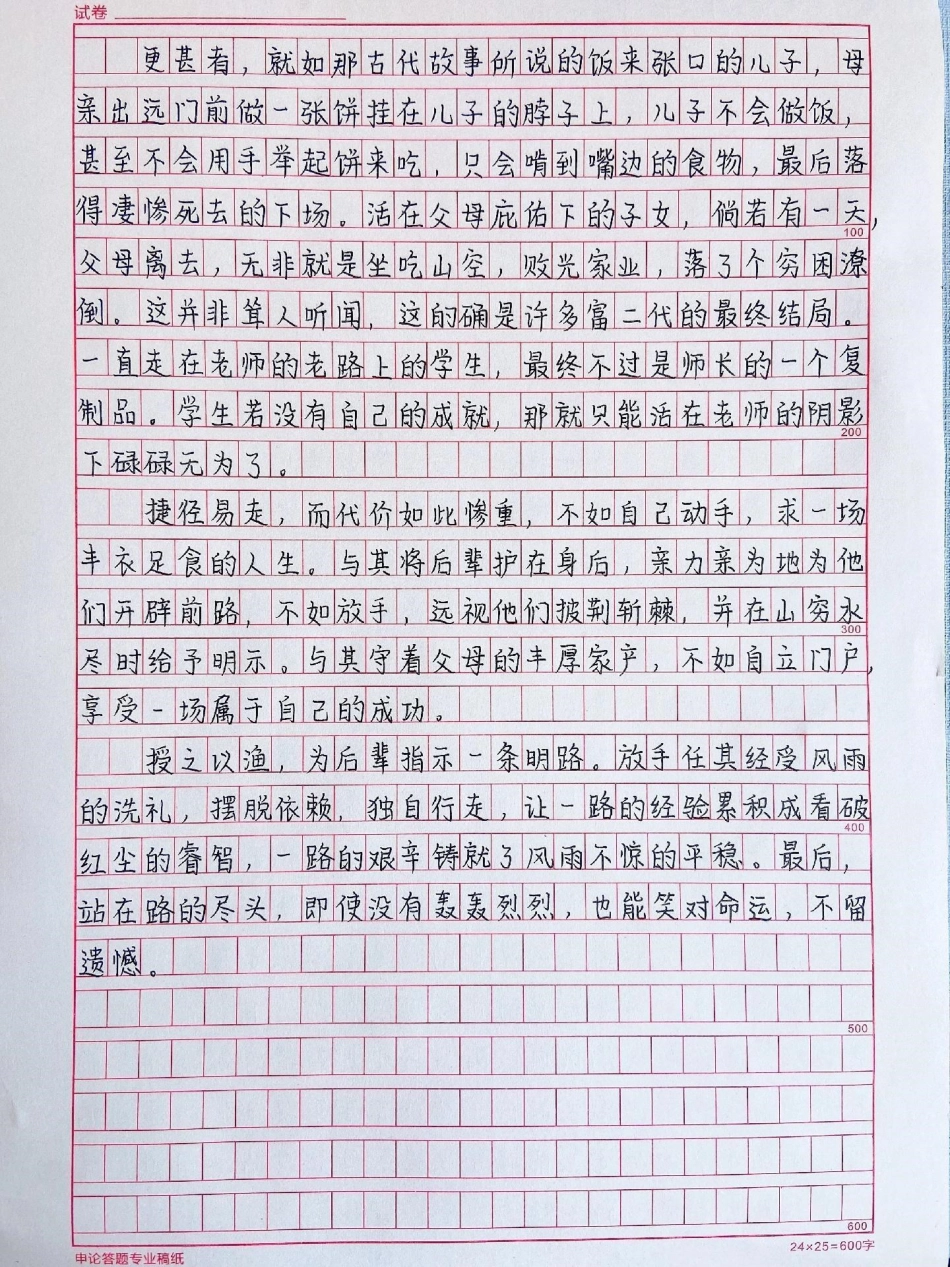 试卷
更甚者，就如那古代故事所说的饭来张口的儿子，母
亲出远门前做一张饼挂在儿子的脖子上，儿子不会做饭，
甚至不会用手举起饼来吃，只会啃到嘴边的食物，最后落
得凄惨死去的下场。活在父母庇佑下的子女，倘若有一天，
100
父母离去，无非就是坐吃山空，败光家业，落了个穷困潦
倒。这并非耸人听闻，这的确是许多富二代的最终结局。
一直走在老师的老路上的学生，最终不过是师长的一个复
制品。学生若没有自己的成就，那就只能活在老师的阴影
200
下碌碌无为了。
捷径易走，而代价如此惨重，不如自己动手，求一场
丰衣足食的人生。与其将后辈护在身后，亲力亲为地为他
们开辟前路，不如放手，远视他们披荆斩棘，并在山穷水
300
尽时给予明示。与其守着父母的丰厚家产，不如自立门户，
享受一场属于自己的成功。
授之以渔，为后辈指示一条明路。放手任其经受风雨
的洗礼，摆脱依赖，独自行走，让一路的经验累积成看破
400
红尘的睿智，一路的艰辛铸就了风雨不惊的平稳。最后，
站在路的尽头，即使没有轰轰烈烈，也能笑对命运，不留
遗憾。
500
600
申论答题专业稿纸
24×25=600字